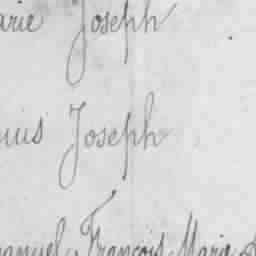 arie Joseph
uis Joseph
anuel, François Marie